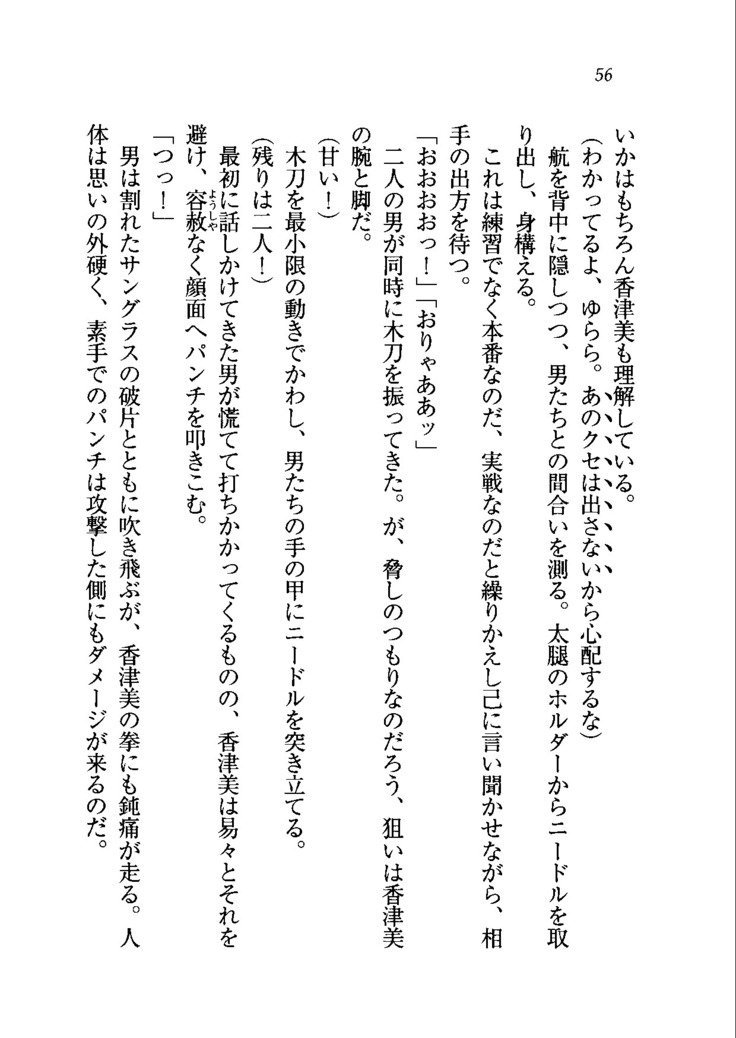 56
いかはもちろん香津美も理解している。
(わかってるよ、ゆらら。あのクセは出さないから心配するな)
航を背中に隠しつつ、男たちとの間合いを測る。太腿のホルダーからニードルを取
り出し、身構える。
これは練習でなく本番なのだ、実戦なのだと繰りかえし己に言い聞かせながら、相
手の出方を待つ。
「おおおおっ!」「おりゃああッ」
二人の男が同時に木刀を振ってきた。が、脅しのつもりなのだろう、狙いは香津美
の腕と脚だ。
(甘い!)
木刀を最小限の動きでかわし、男たちの手の甲にニードルを突き立てる。
(残りは二人!)
最初に話しかけてきた男が慌てて打ちかかってくるものの、香津美は易々とそれを
避け、容赦ようしゃなく顔面へパンチを叩きこむ。
「つっ!」
男は割れたサングラスの破片とともに吹き飛ぶが、香津美の拳にも鈍痛が走る。人
体は思いの外硬く、素手でのパンチは攻撃した側にもダメージが来るのだ。